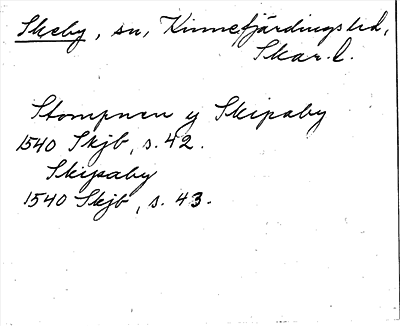 Skeby, sn, Kinnefjärdings hd,
Skar. l.
Stompnen y Skipaby
1540 Skjb, s. 42.
Skipaby
1540 Skjb, s. 43.